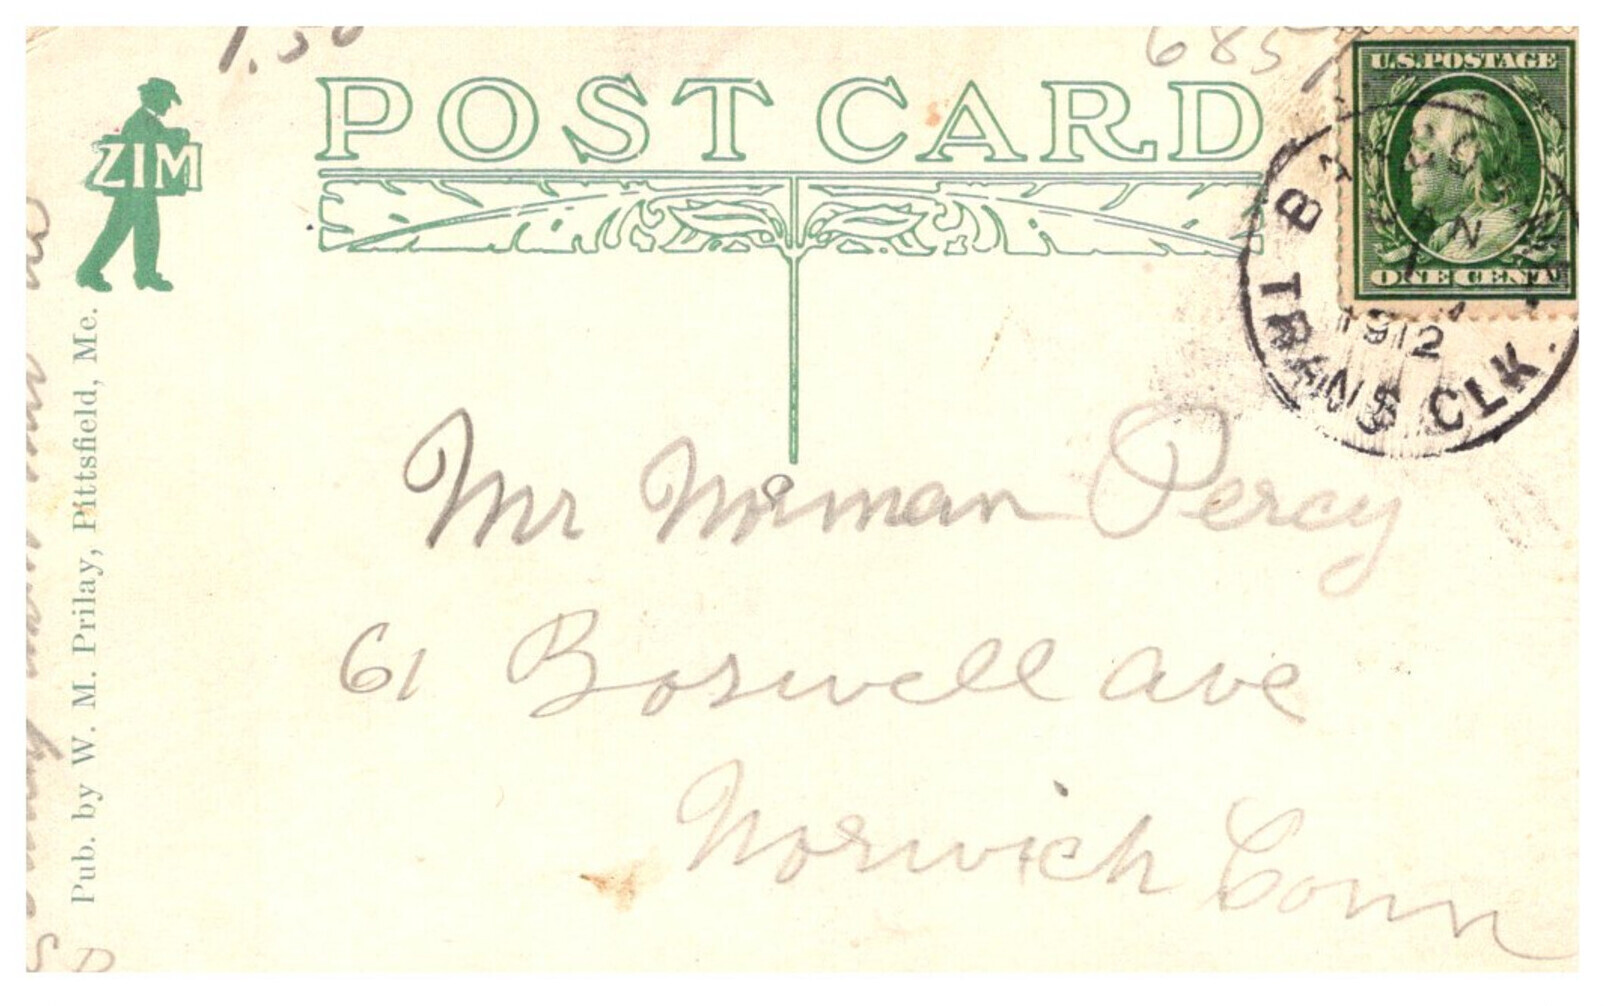 1.50
685
ZIM
POST CARD
U.S.POSTAGE
ONE CENT
1912
TRANS CLK.
Pub. by W. M. Prilay, Pittsfield, Me.
Mr Norman Percy
61 Boswell Ave
Norwich Conn